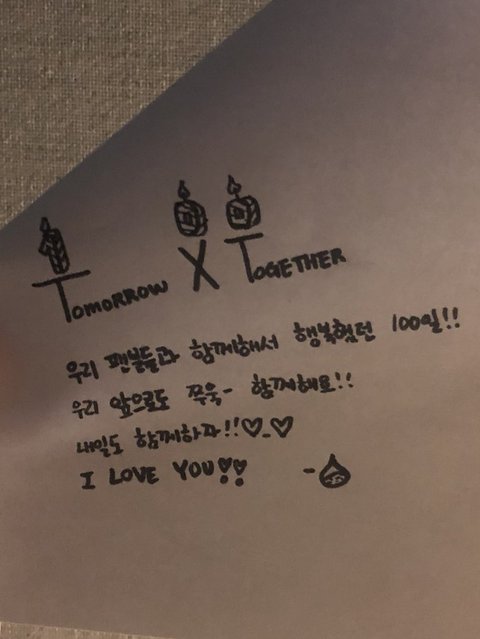 100
TOMORROW X TOGETHER
우리 팬분들과 함께해서 행복했던 100일!!
우리 앞으로도 쭈욱- 함께해요!!
내일도 함께하자!!♡_♡
I LOVE YOU!!
-